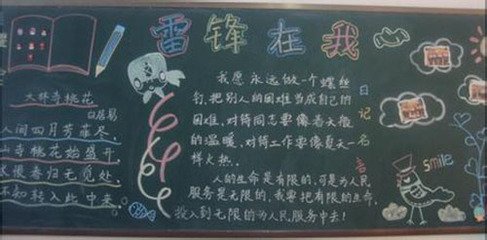 雷锋在我
大林寺桃花
白居易
人间四月芳菲尽,
山寺桃花始盛开,
长恨春归无觅处,
不知转入此中来。
我愿永远做一个螺丝
钉,把别人的困难当成自己的
困难,对待同志要像春天般
的温暖,对待工作要像夏天一
样火热。
人的生命是有限的,可是为人民
服务是无限的,我要把有限的生命,
投入到无限的为人民服务中去!
日记名言
smile